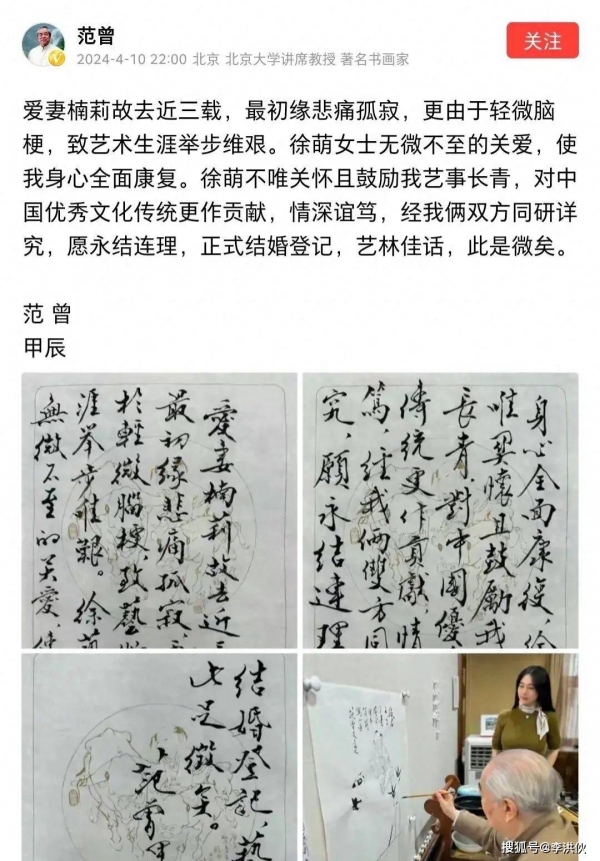 范曾
关注
2024-4-10 22:00 北京 北京大学讲席教授 著名书画家
爱妻楠莉故去近三载，最初缘悲痛孤寂，更由于轻微脑
梗，致艺术生涯举步维艰。徐萌女士无微不至的关爱，使
我身心全面康复。徐萌不唯关怀且鼓励我艺事长青，对中
国优秀文化传统更作贡献，情深谊笃，经我俩双方同研详
究，愿永结连理，正式结婚登记，艺林佳话，此是微矣。
范 曾
甲辰
愛妻楠莉故去近
最初缘悲痛孤寂，
於輕微腦梗，致藝
涯举步唯艱。徐萌
無微不至的关愛，使
身心全面康復，徐
唯関懷且鼓勵我
長青，對中國優
傳統更作貢獻，情
篤，經我倆雙方同
究，願永结連理
结婚登记，藝
此是微矣。
范曾甲
搜狐号@李洪伙